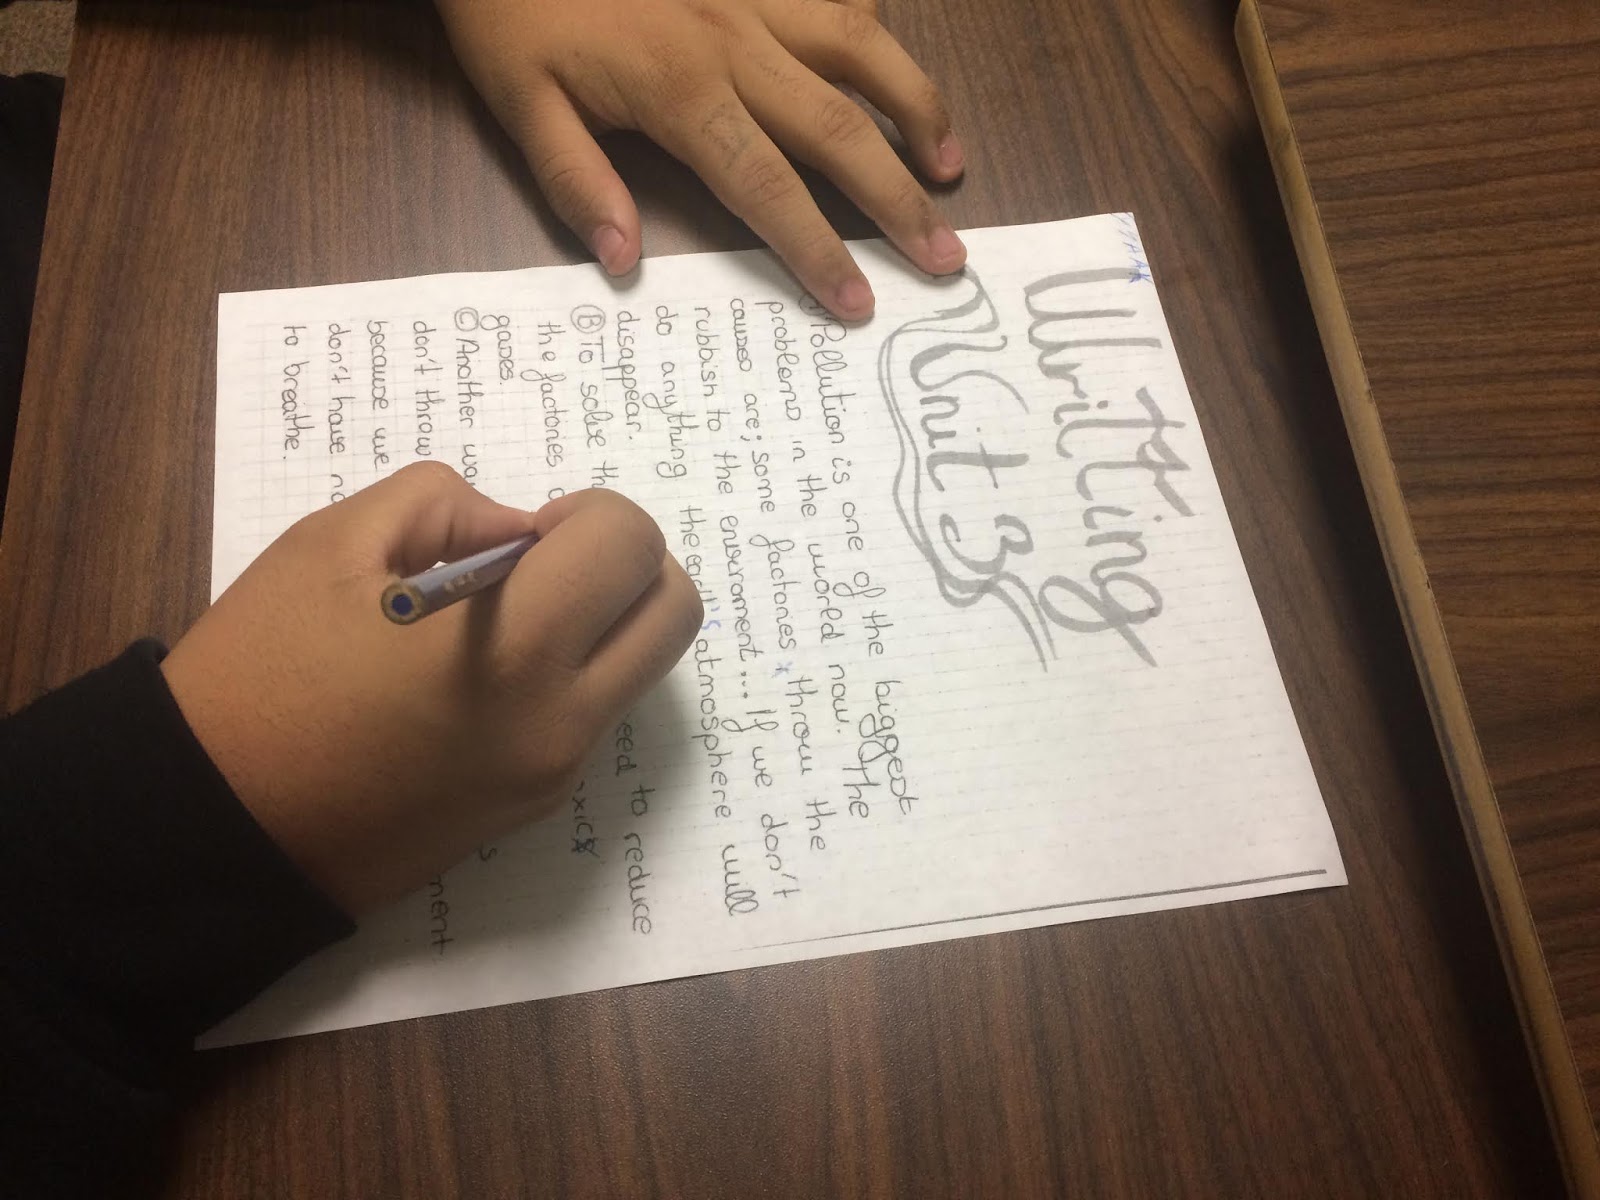 Writing
Unit 3
Pollution is one of the biggest
problems in the world now. The
causes are; some factories throw the
rubbish to the enviroment... If we don't
do anything the earth's atmosphere will
disappear.
B To solve eed to reduce
the factories
gases.
C Another
don't throw
because we
don't have
to breathe.